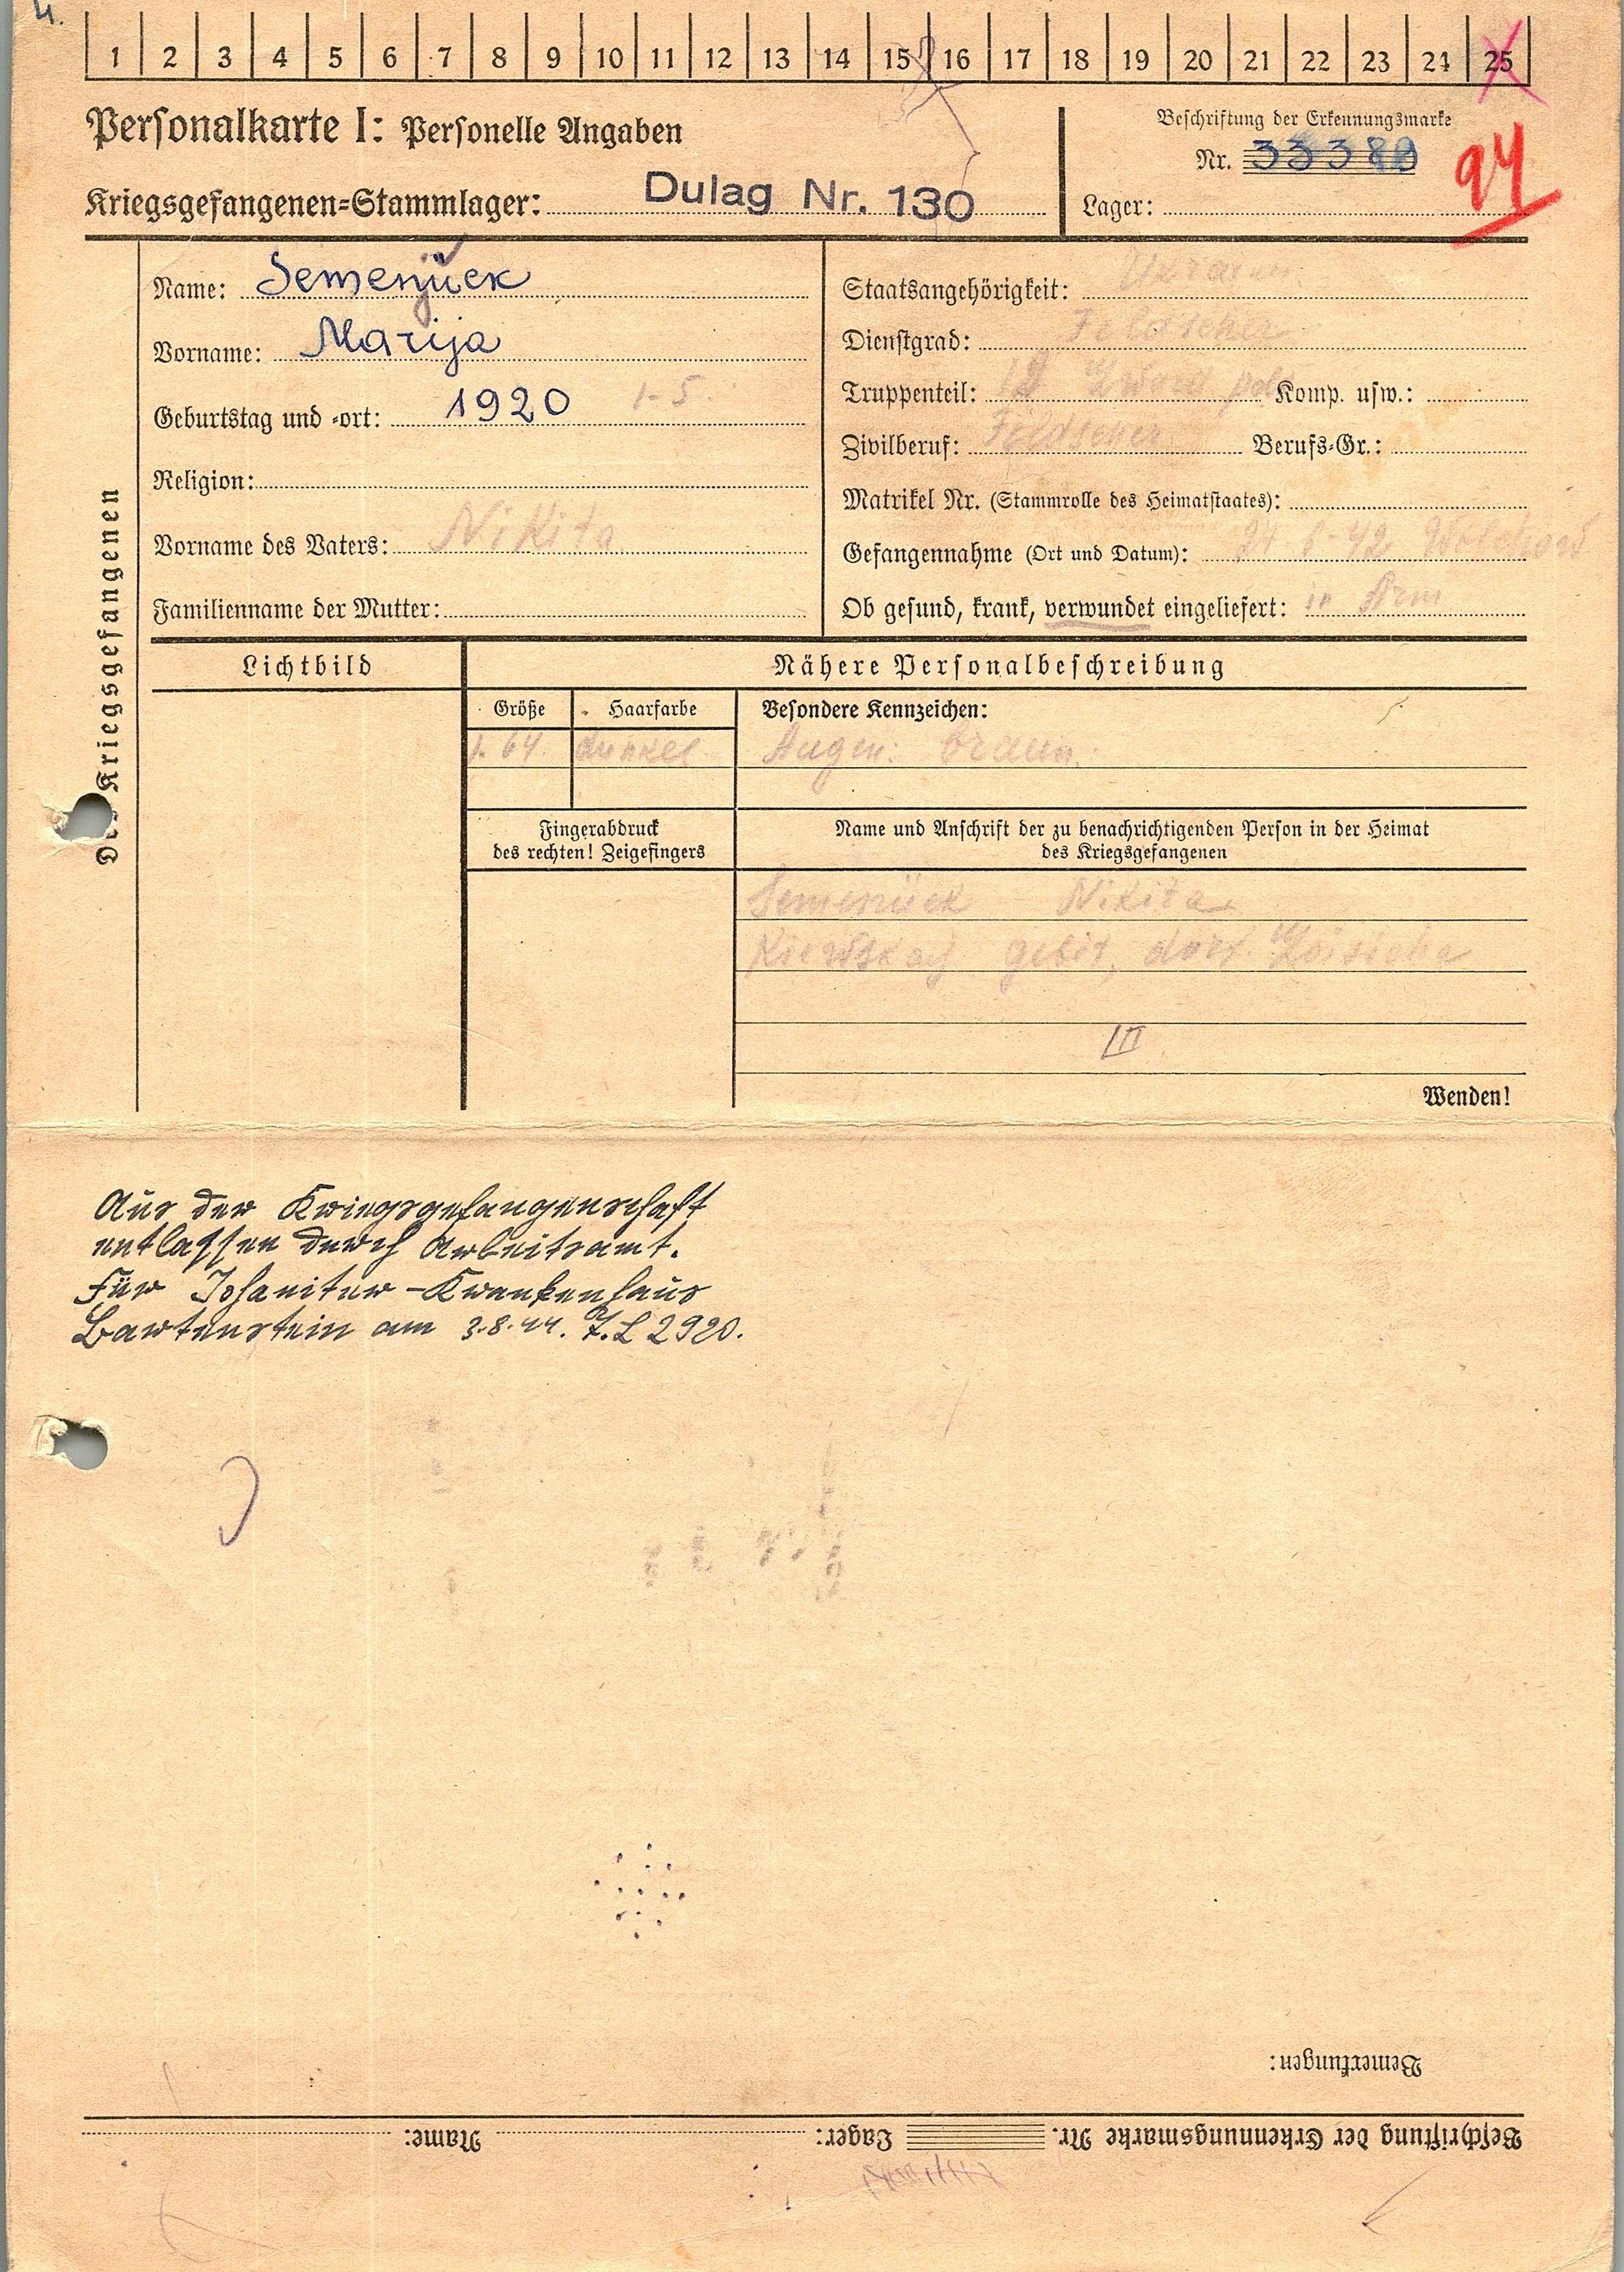 1 2 3 4 5 6 7 8 9 10 11 12 13 14 15 16 17 18 19 20 21 22 23 24 25
Personalkarte I: Personelle Angaben
Beschriftung der Erkennungsmarke
Nr. 333
94
Kriegsgefangenen-Stammlager: Dulag Nr. 130
Lager:
Des Kriegsgefangenen
Name: Semenjuek
Vorname: Marija
Geburtstag und -ort: 1920 1-5.
Religion:
Vorname des Vaters: Nikita
Familienname der Mutter:
Staatsangehörigkeit:
Dienstgrad: Feldscher
Truppenteil: Komp. usw.:
Zivilberuf: Feldscher Berufs-Gr.:
Matrikel Nr. (Stammrolle des Heimatstaates):
Gefangennahme (Ort und Datum): 42 Wolchow
Ob gesund, krank, verwundet eingeliefert: in Arm
Lichtbild
Nähere Personalbeschreibung
Größe Haarfarbe Besondere Kennzeichen:
1.64 dunkel Augen: braun.
Fingerabdruck
des rechten! Zeigefingers
Name und Anschrift der zu benachrichtigenden Person in der Heimat
des Kriegsgefangenen
Semenüek Nikita
gebit, dorf.
III
Wenden!
Aus der Kriegsgefangenschaft
entlassen durch Arbeitsamt.
Für Johaniter-Krankenhaus
Bartenstein am 3.8.44. 2920.
Bemerkungen:
Beschriftung der Erkennungsmarke Nr. Lager: Name: